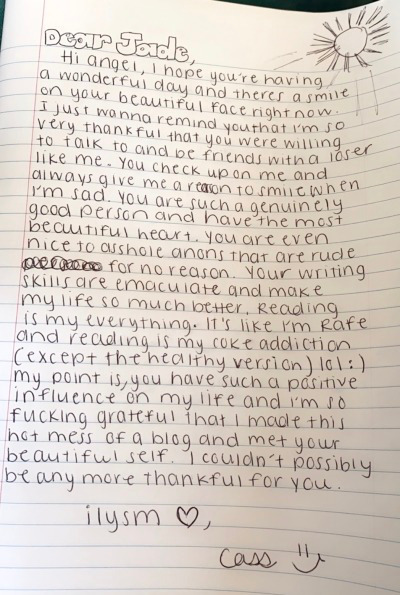 Dear Jade,
Hi angel, I hope you're having
a wonderful day and theres a smile
on your beautiful face right now.
I just wanna remind you that I'm so
very thankful that you were willing
to talk to and be friends with a loser
like me. You check up on me and
always give me a reason to smile when
I'm sad. You are such a genuinely
good person and have the most
beautiful heart. You are even
nice to asshole anons that are rude
for no reason. Your writing
skills are emaculate and make
my life so much better. Reading
is my everything. It's like I'm Rafe
and reading is my coke addiction
(except the healthy version) lol :)
my point is, you have such a positive
influence on my life and i'm so
fucking grateful that I made this
hot mess of a blog and met your
beautiful self. I couldn't possibly
be any more thankful for you.
ilysm ♡,
Cass :)